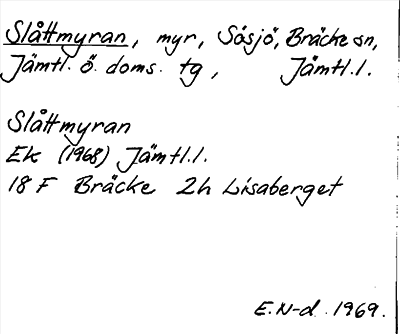 Slåttmyran, myr, Sösjö, Bräcke sn,
Jämtl. ö. doms. tg, Jämtl.l.
Slåttmyran
Ek (1968) Jämtl.l.
18 F Bräcke 2h Lisaberget
E.N-d. 1969.